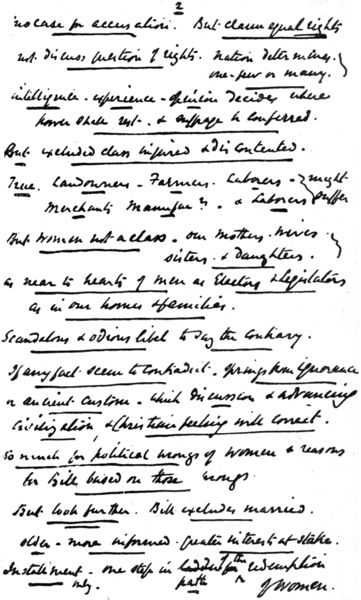 2
no case for accusation. But claim equal rights
not discuss question of rights. Nation determines.
one - few or many.
intelligence - experience - opinion decides where
power shall rest - & suffrage be conferred.
But excluded class injured & discontented.
True. Landowners - Farmers. Laborers - might
Merchants Manufars. & Laborers suffer
But women not a class - our mothers, wives
sisters - & daughters.
as near to hearts of men as Electors & Legislators
as in our homes & families.
Scandalous & odious libel to say the contrary.
If any fact seem to contradict - springs from ignorance
or ancient custom - which discussion & advancing
civilization & Christian feeling will correct.
So much for political wrongs of women & reasons
for Bill based on those wrongs
But look further. Bill excludes married.
older - more informed - greater interests at stake.
Instalment - one step in ladder of the redemption
only. path of women.